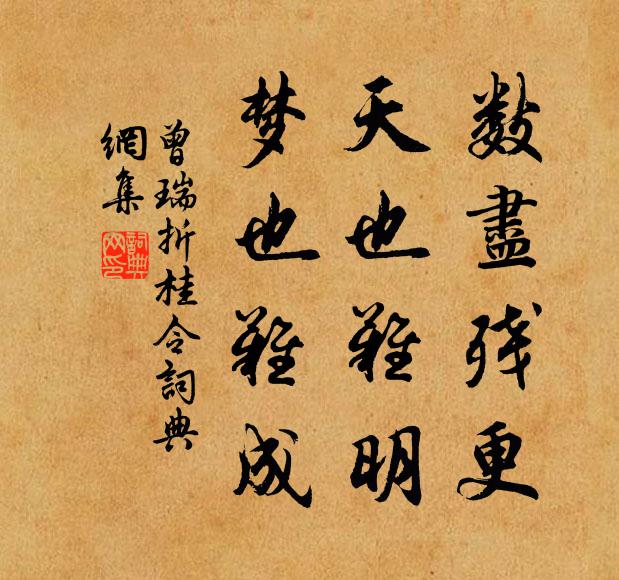 数盡残更
天也難明
梦也難成
曾瑞折桂令詞典
網集
詞典
网印